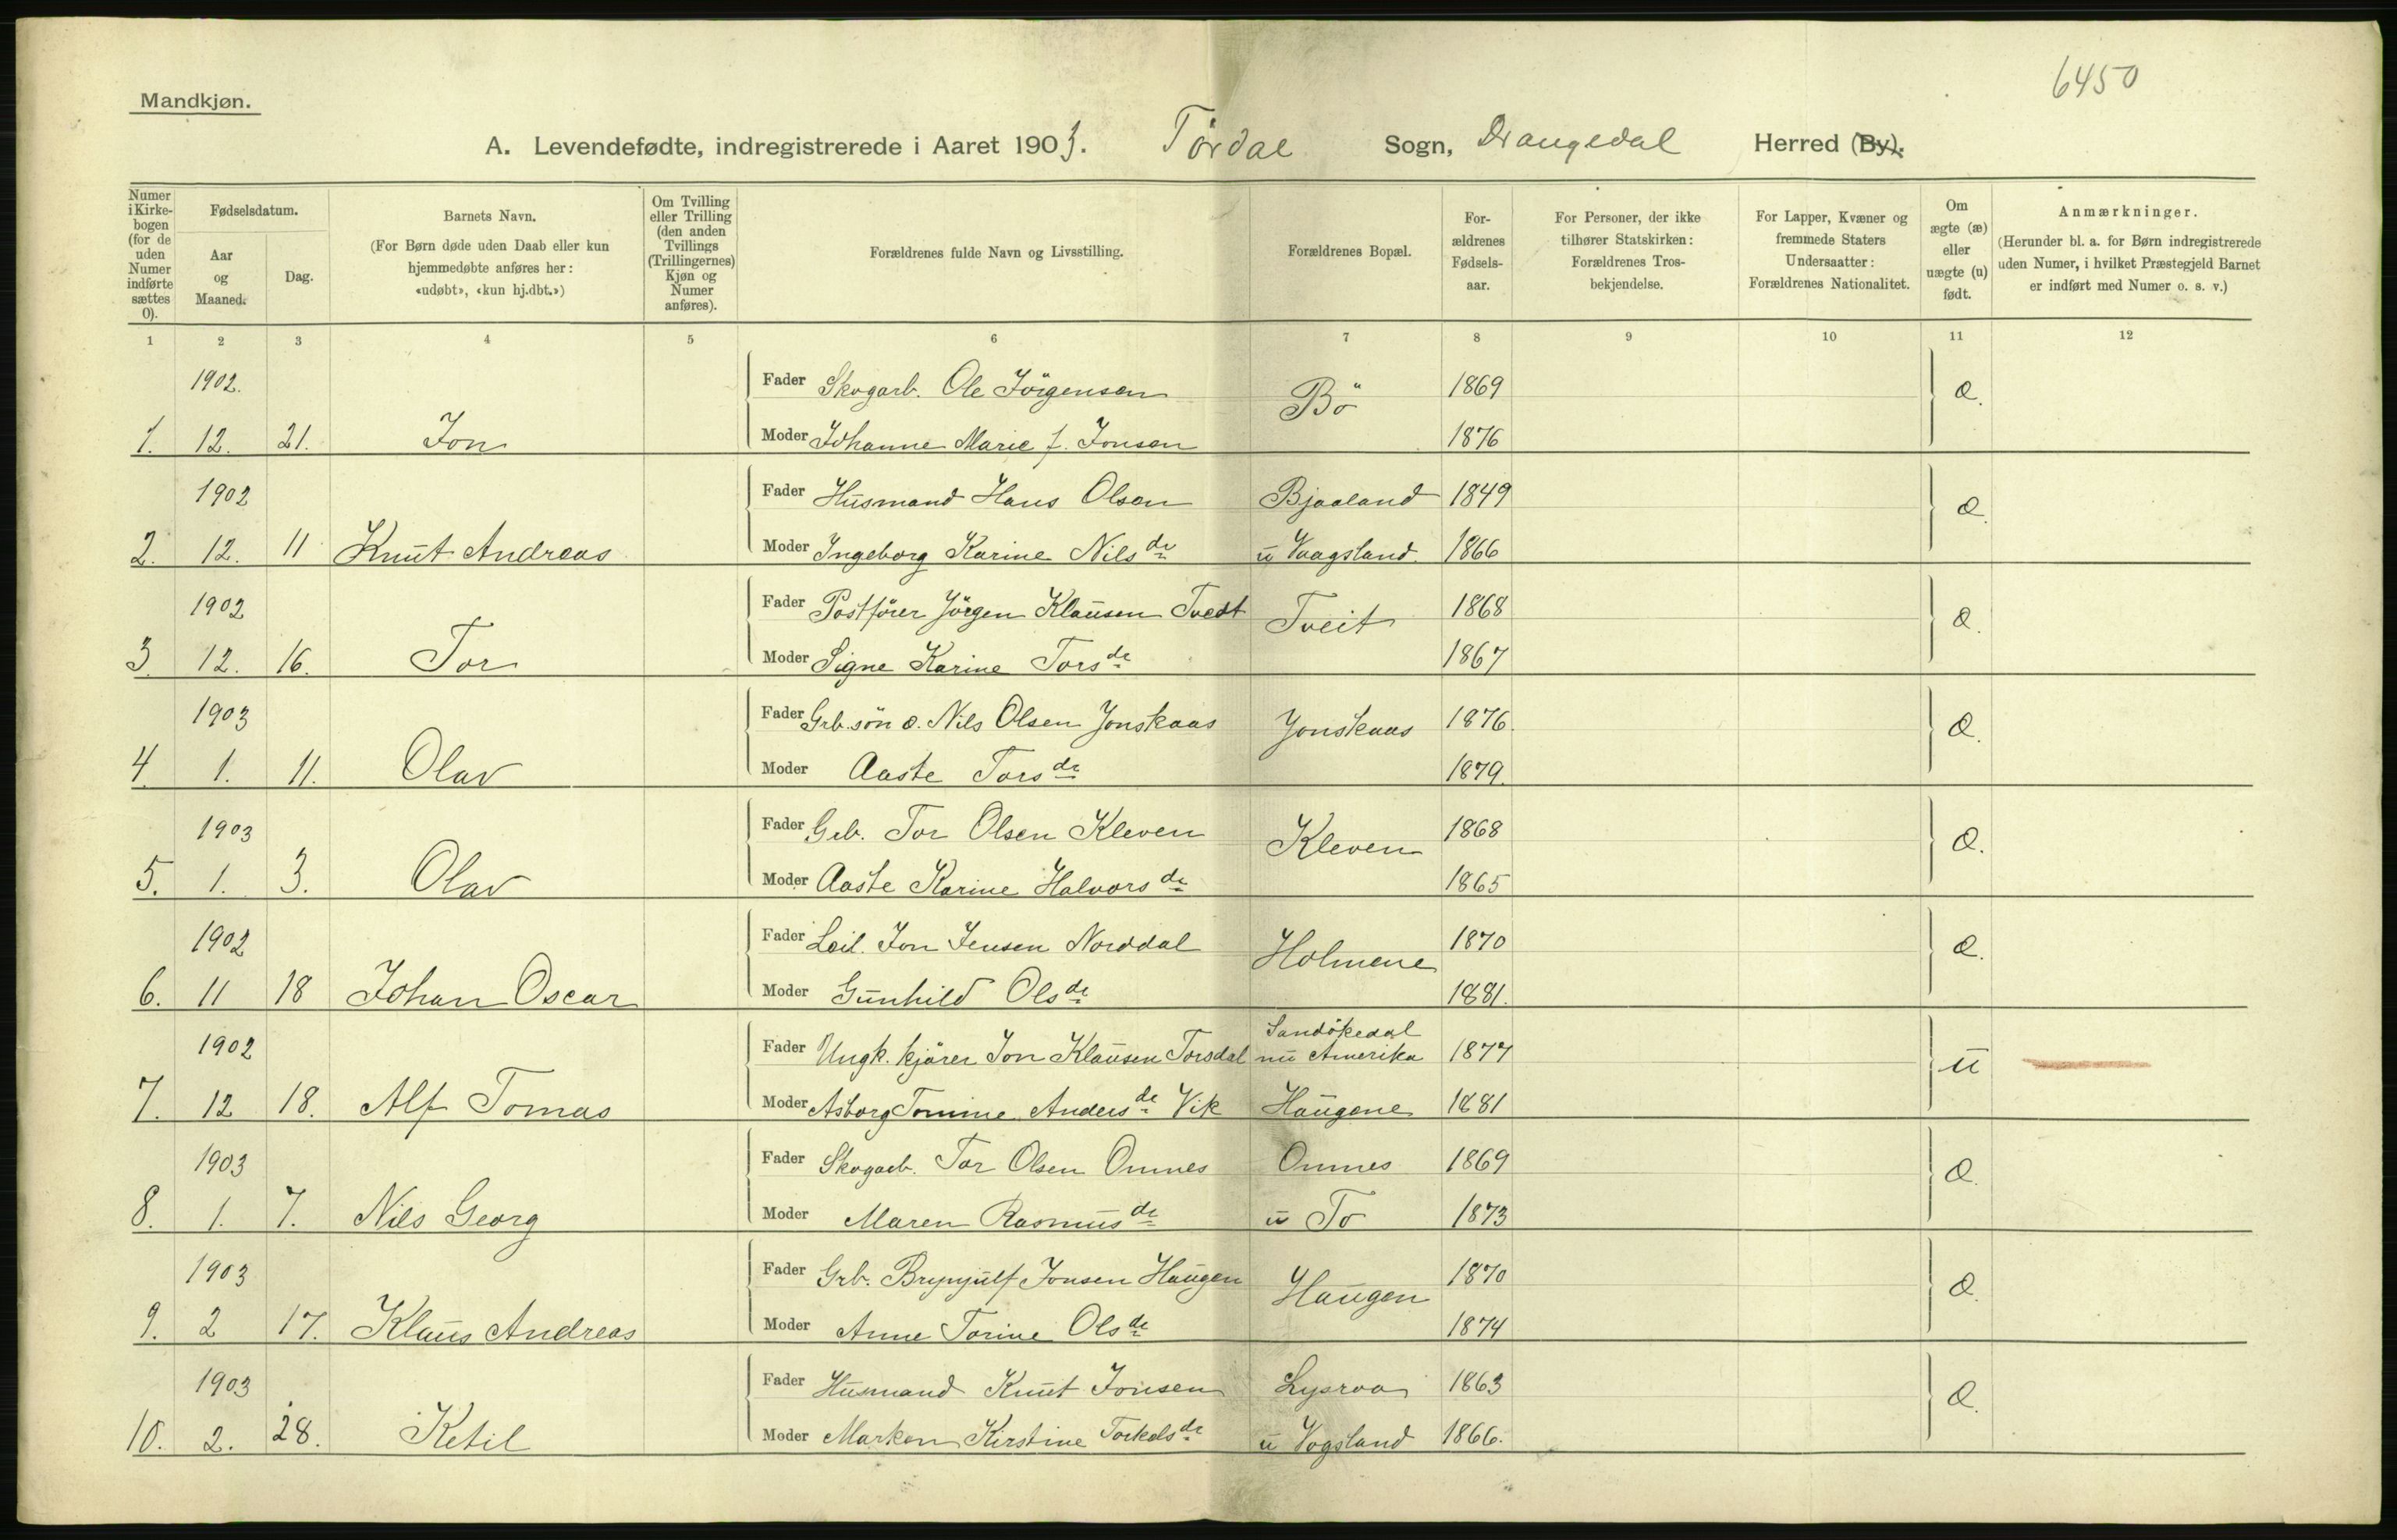 6450
Mandkjøn.
A. Levendefødte, indregistrerede i Aaret 1903. Tördal Sogn, Drangedal Herred (By).
Numer i Kirkebogen (for de uden Numer indførte sættes 0).
Fødselsdatum.
Aar og Maaned.
Dag.
Barnets Navn.
(For Børn døde uden Daab eller kun hjemmedøbte anføres her: «udøbt», «kun hj.dbt.»)
Om Tvilling eller Trilling (den anden Tvillings (Trillingernes) Kjøn og Numer anføres).
Forældrenes fulde Navn og Livsstilling.
Forældrenes Bopæl.
Forældrenes Fødselsaar.
For Personer, der ikke tilhører Statskirken: Forældrenes Trosbekjendelse.
For Lapper, Kvæner og fremmede Staters Undersaatter: Forældrenes Nationalitet.
Om ægte (æ) eller uægte (u) født.
Anmærkninger.
(Herunder bl. a. for Børn indregistrerede uden Numer, i hvilket Præstegjeld Barnet er indført med Numer o. s. v.)
1 2 3 4 5 6 7 8 9 10 11 12
1902. Fader Skogarb. Ole Jörgensen Bö 1869 æ.
1. 12. 21. Jon Moder Johanne Marie f. Jonsen 1876
1902 Fader Husmand Hans Olsen Bjaaland 1849 æ.
2. 12. 11 Knut Andreas Moder Ingeborg Karine Nilsdr u Vaagsland. 1866
1902 Fader Postförer Jörgen Klausen Tvedt Tveit 1868 æ.
3. 12. 16. Tor Moder Signe Karine Torsdr 1867
1903 Fader Grb.sön o. Nils Olsen Jonskaas Jonskaas 1876. æ.
4. 1. 11. Olav Moder Aaste Torsdr 1879.
1903 Fader Grb. Tor Olsen Kleven Kleven 1868 æ.
5. 1. 3. Olav Moder Aaste Karine Halvorsdr 1865
1902 Fader Leil. Jon Jensen Norddal Holmene 1870 æ.
6. 11 18 Johan Oscar Moder Gunhild Olsdr 1881.
1902 Fader Ungk. kjörer Jon Klausen Torsdal Sandökedal nu Amerika 1877 u
7. 12 18. Alf Tomas Moder Asborg Tomine Andersdr Vik Haugene 1881
1903 Fader Skogarb. Tor Olsen Omnes Omnes 1869 æ.
8. 1. 7. Nils Georg Moder Maren Rasmusdr u To 1873
1903 Fader Grb. Brynjulf Jonsen Haugen Haugen 1870 æ.
9. 2 17. Klaus Andreas Moder Anne Torine Olsdr 1874
1903 Fader Husmand Knut Jonsen Lysroa 1863 æ.
10. 2. 28. Ketil Moder Marken Kirstine Torkelsdr u Vogsland 1866.